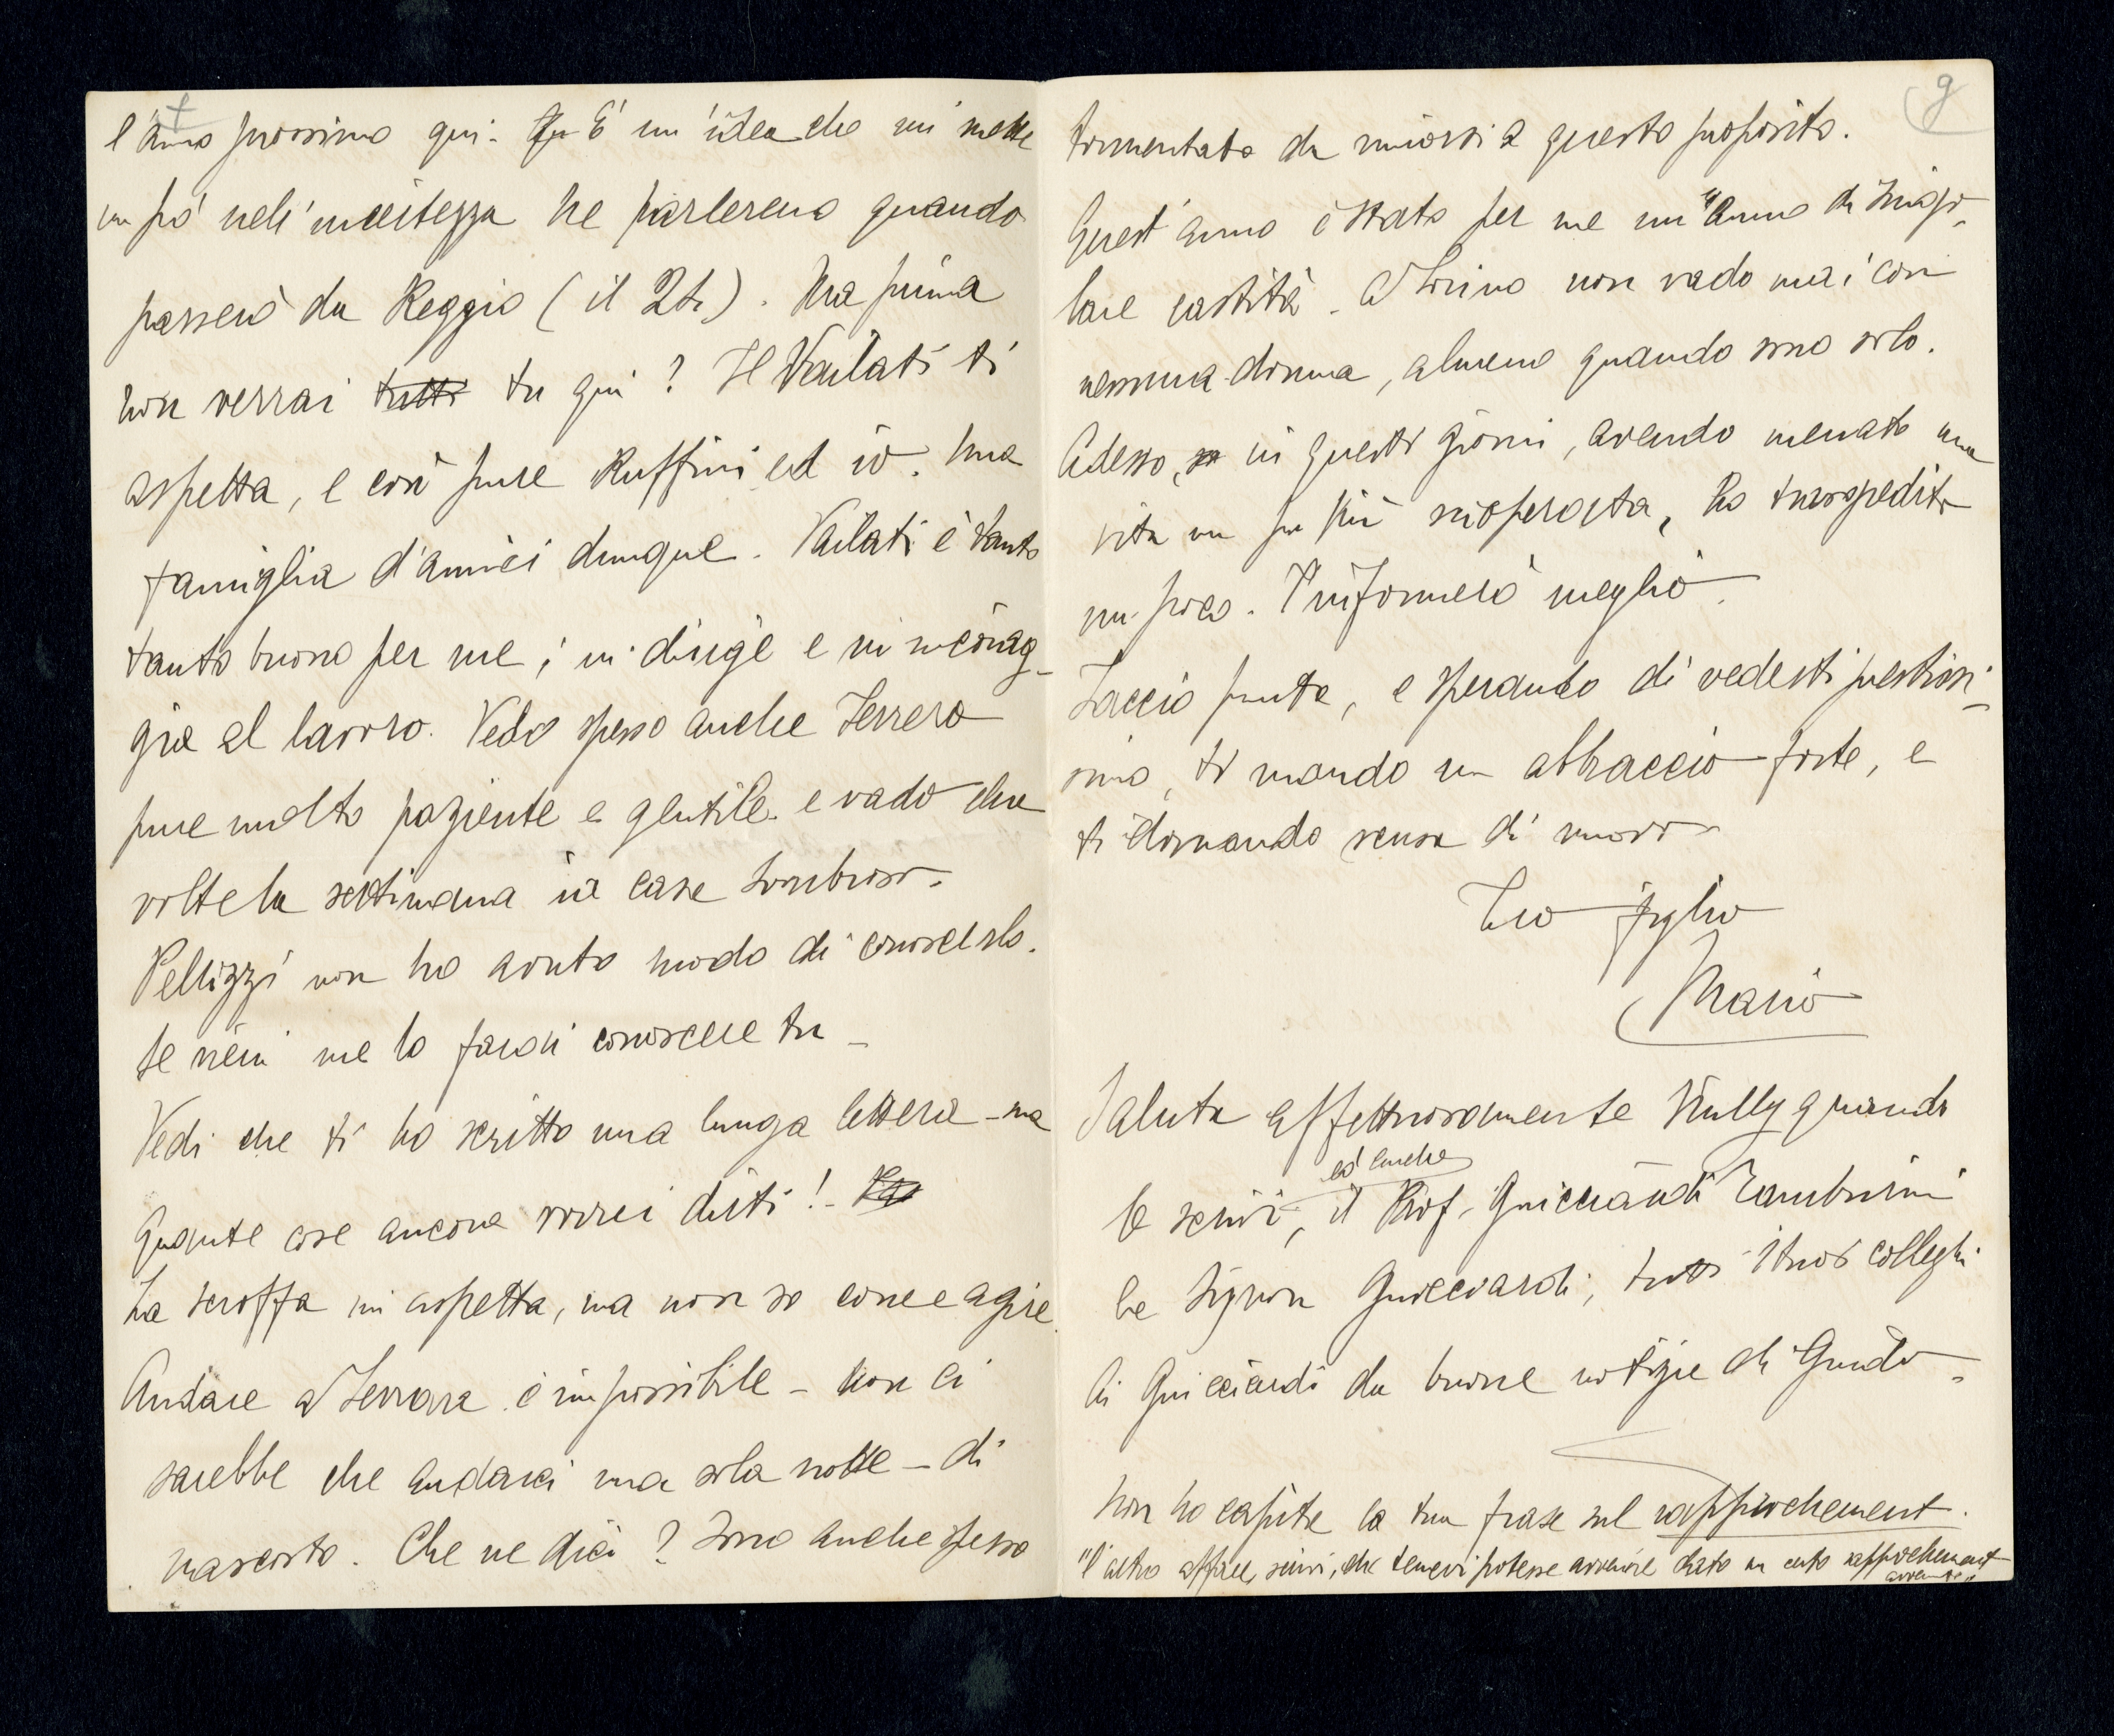 l'anno prossimo qui. È un'idea che mi mette
un pò nell'incertezza ne parleremo quando
passerò da Reggio (il 24). Ma prima
non verrai tutti tu qui? Il Vailati ti
aspetta, e così pure Ruffini ed io. Una
famiglia d'amici dunque. Vailati è tanto
tanto buono per me; mi dirige e mi incorag-
gia al lavoro. Vedo spesso anche Ferrero
pure molto paziente e gentile e vado due
volte la settimana in casa Lombroso.
Pellizzi non ho avuto modo di conoscerlo.
Se vieni me lo farai conoscere tu -
Vedi che ti ho scritto una lunga lettera - ma
Quante cose ancora vorrei dirti! -
La scroffa mi aspetta, ma non so come agire.
Andare a Ferrara è impossibile - Non ci
sarebbe che andarci una sola notte - di
nascosto. Che ne dici? Sono anche spesso
g
tormentato da rimorsi a questo proposito.
Quest'anno è stato per me un anno di singo-
lare castità. A Torino non vado mai con
nessuna donna, almeno quando sono solo.
Adesso, in questi giorni, avendo menato una
vita un po più scioperata, ho trasgredito
un poco. T'informerò meglio.
Faccio punto, e sperando di vederti prestissi-
simo, ti mando un abbraccio forte, e
ti domando scusa di nuovo
Tuo figlio
Mario
Saluta affettuosamente quando
le scrivi, ed anche il Prof. Guicciardi Tamburini
la Signora Guicciardi, tutti i tuoi colleghi
Ai Guicciardi da buone notizie di Guido -
Non ho capito la tua frase sul rapprochement.
"l'altro affare, scrivi, che temevi potesse avvenire dato un certo rapprochement
avvenuto"